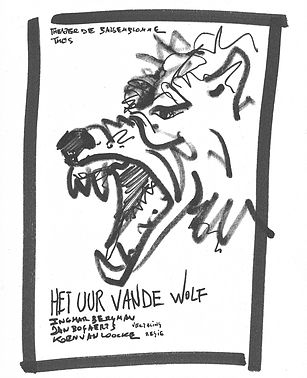 THEATER DE BAISEBLOMME
THOS
HET UUR VANDE WOLF
INGMAR BERGMAN
JAN BOGAERTS VERTALING
KOEN VAN LOOCKE REGIE